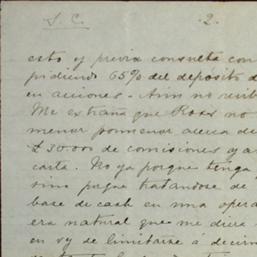 S. C. 2.
esto y previa consulta con
pidiendo 65% del depósito d
en acciones - Aún no recib
Me extraña que Ross no
menor pormenor acerca de
£ 30.000 de comisiones y a
carta. No ya porque tenga
sino porque tratandose de
base de cash en una opera
era natural que me diera
en vy de limitarse á decirm